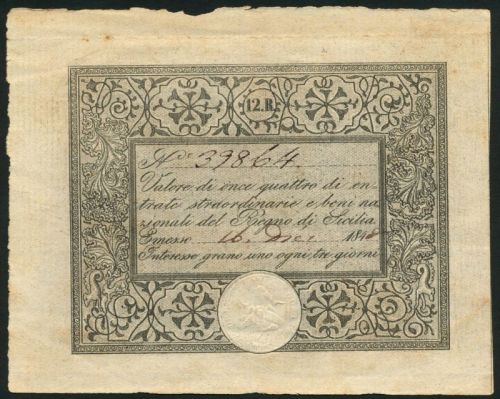 12. R.
N.º 39864
Valore di once quattro di en-
trate straordinarie e beni na-
zionali del Regno di Sicilia
Emesso 16. Dice 1848
Interesse grano uno ogni tre giorni